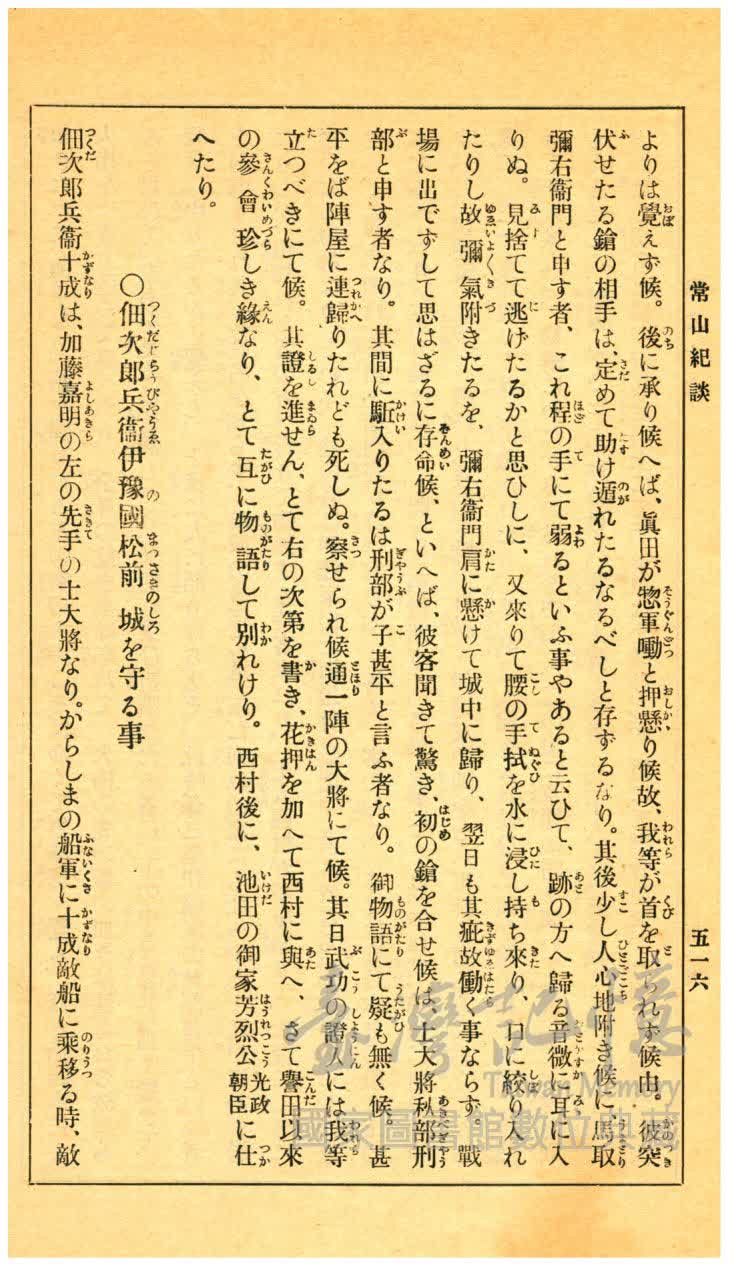 常山紀談
五一六
よりは覺えず候。後に承り候へば、眞田が惣軍噇と押懸り候故、我等が首を取られず候由。彼突
伏せたる鎗の相手は、定めて助け遁れたるなるべしと存ずるなり。其後少し人心地附き候に、馬取
彌右衞門と申す者、これ程の手にて弱るといふ事やあると云ひて、跡の方へ歸る音微に耳に入
りぬ。見捨てて逃げたるかと思ひしに、又來りて腰の手拭を水に浸し持ち來り、口に絞り入れ
たりし故彌氣附きたるを、彌右衞門肩に懸けて城中に歸り、翌日も其疵故働く事ならず。戰
場に出でずして思はざるに存命候、といへば、彼客聞きて驚き、初の鎗を合せ候は、士大將秋部刑
部と申す者なり。其間に駈入りたるは刑部が子甚平と言ふ者なり。御物語にて疑も無く候。甚
平をば陣屋に連歸りたれども死しぬ。察せられ候通一陣の大將にて候。其日武功の證人には我等
立つべきにて候。其證を進せん、とて右の次第を書き、花押を加へて西村に與へ、さて譽田以來
の參會珍しき緣なり、とて互に物語して別れけり。西村後に、池田の御家芳烈公光政朝臣に仕
へたり。
〇佃次郎兵衞伊豫國松前城を守る事
佃次郎兵衞十成は、加藤嘉明の左の先手の士大將なり。からしまの船軍に十成敵船に乘移る時、敵
臺灣記憶
Taiwan Memory
國家圖書館數位典藏